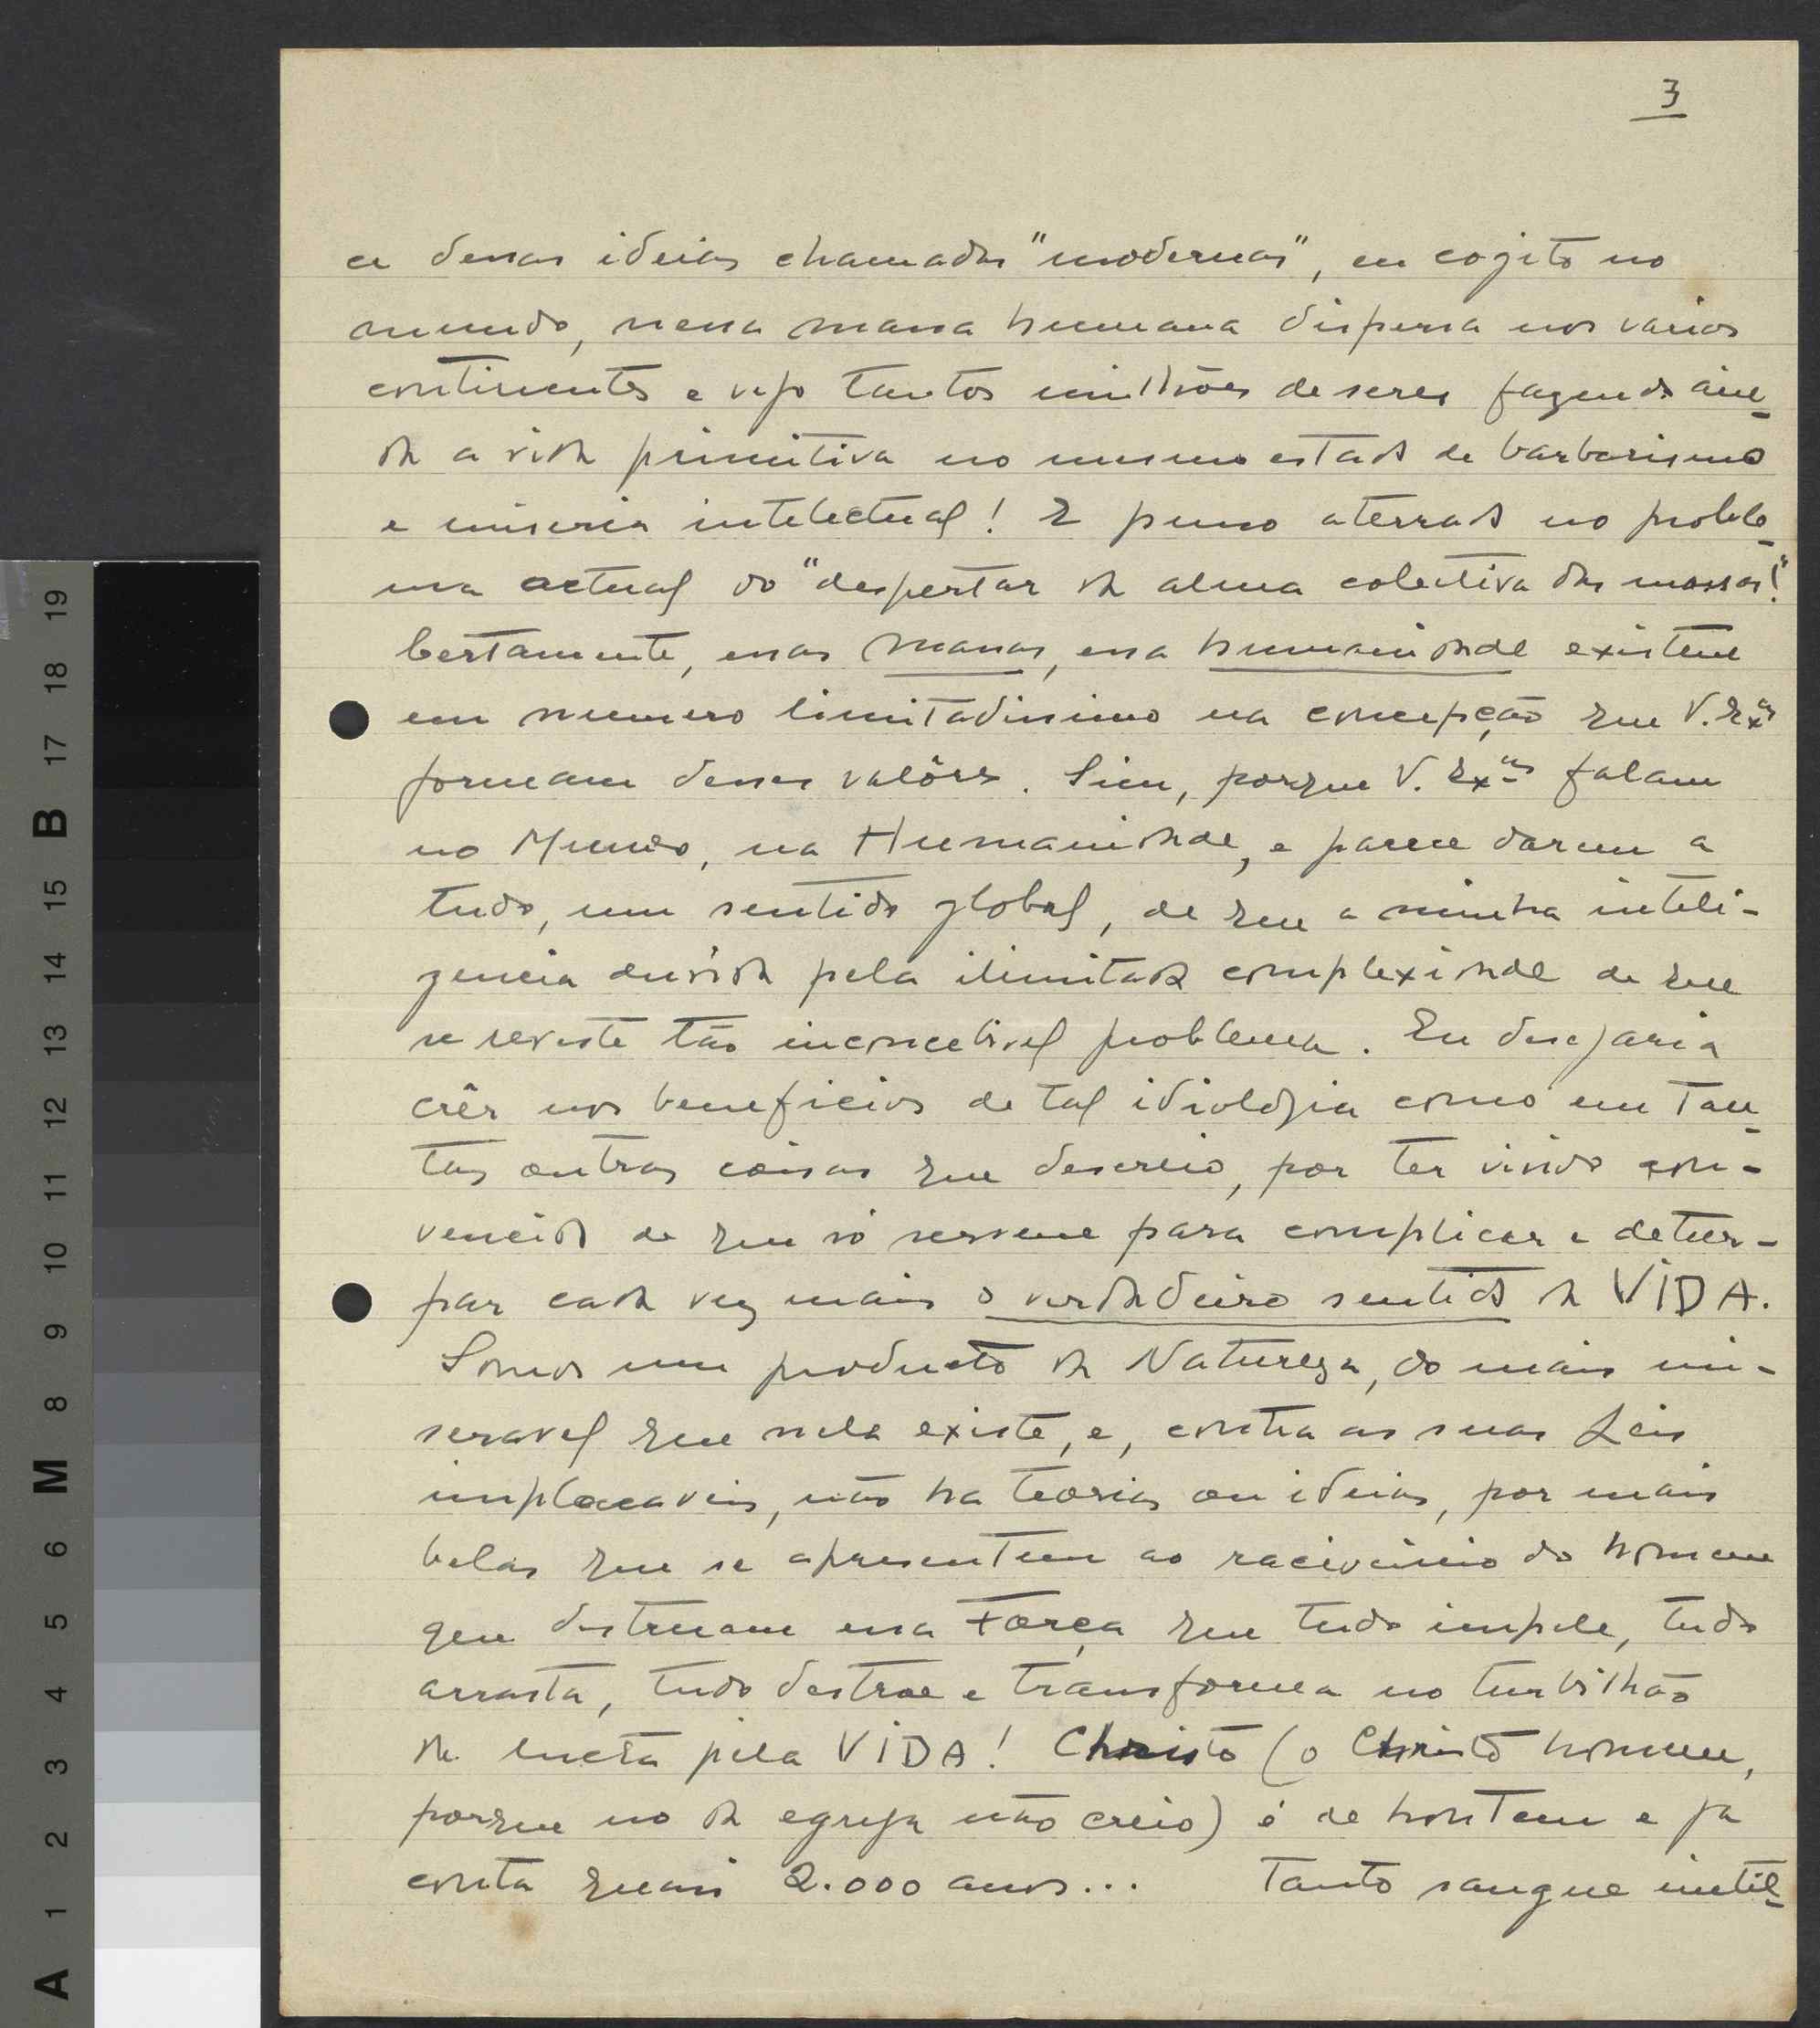 3
ce dessas ideias chamadas "modernas", eu cogito no
mundo, nessa massa humana dispersa nos varios
continentes e vejo tantos milhões de seres fazendo ain-
da a vida primitiva no mesmo estado de barbarismo
e miseria intelectual! E penso aterrado no proble-
ma actual do "despertar da alma colectiva das massas!"
Certamente, essas massas, essa humanidade existem
em numero limitadissimo na concepção que V. Exªs
formam desses valôres. Sim, porque V. Exªs falam
no Mundo, na Humanidade, e parece darem a
tudo, um sentido global, de que a minha inteli-
gencia duvida pela ilimitada complexidade de que
se reveste tão inconcebivel problema. Eu desejaria
crêr nos beneficios de tal idiologia como em tan-
tas outras coisas que descreio, por ter vivido con-
vencido de que só servem para complicar e detur-
par cada vez mais o verdadeiro sentido da VIDA.
Somos um producto da Natureza, do mais mi-
seravel que nela existe, e, contra as suas Leis
implacaveis, não ha teorias ou ideias, por mais
belas que se apresentem ao raciocinio do homem
que destruam essa Força que tudo impele, tudo
arrasta, tudo destroe e transforma no turbilhão
da lucta pela VIDA! Christo (o Christo homem,
porque no da egreja não creio) é de hontem e já
conta quasi 2.000 anos... Tanto sangue inutil-
A 1 2 3 4 5 6 M 8 9 10 11 12 13 14 15 B 17 18 19